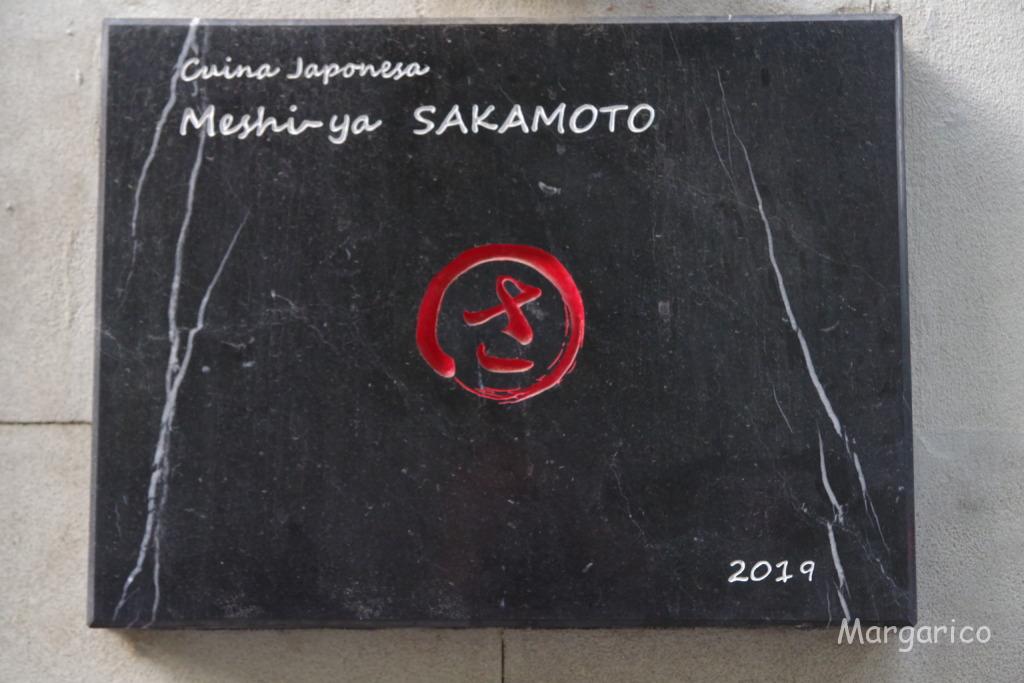 Cuina Japonesa
Meshi-ya SAKAMOTO
さ
2019
Margarico